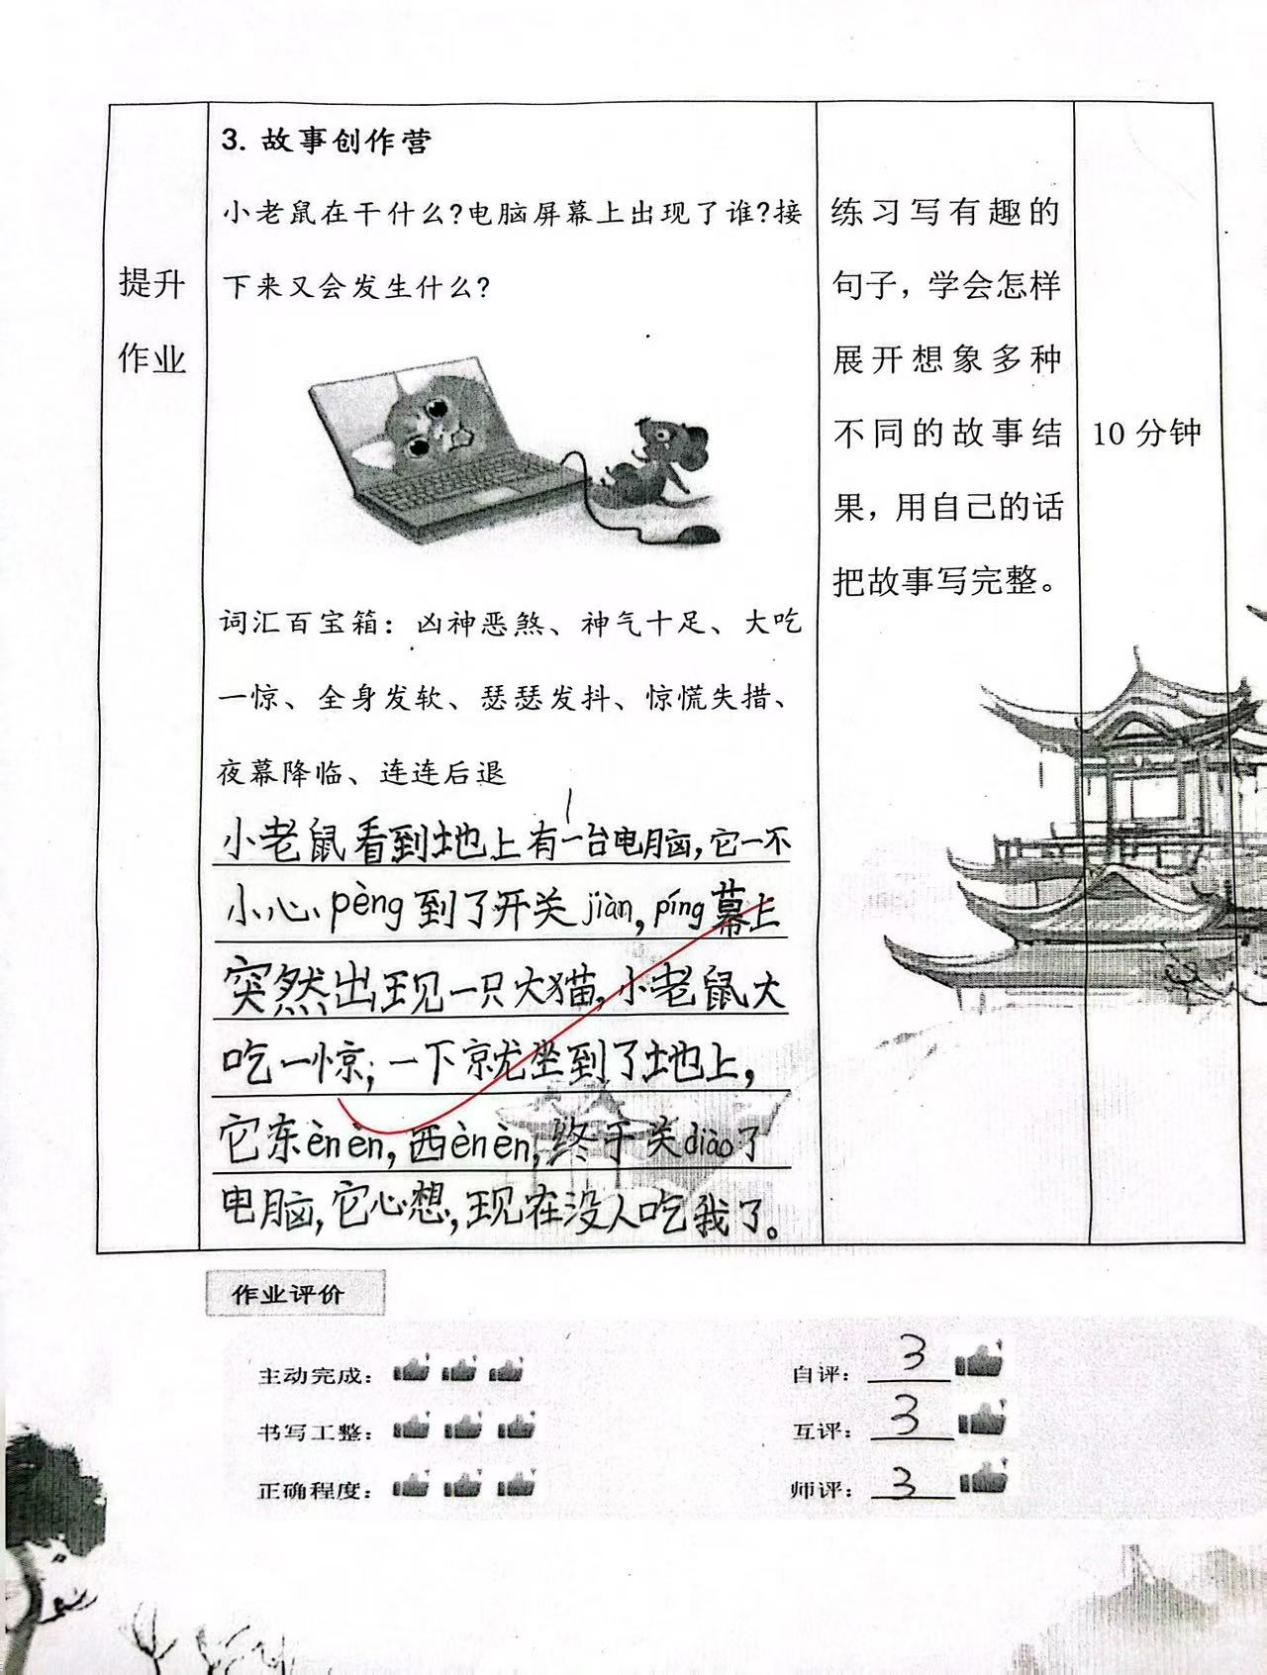 3. 故事创作营
小老鼠在干什么?电脑屏幕上出现了谁?接
下来又会发生什么?
提升
作业
词汇百宝箱：凶神恶煞、神气十足、大吃
一惊、全身发软、瑟瑟发抖、惊慌失措、
夜幕降临、连连后退
小老鼠看到地上有一台电脑,它一不
小心pèng到了开关jiàn,píng幕上
突然出现一只大猫,小老鼠大
吃一惊,一下就坐到了地上,
它东èn èn,西èn èn,终于关diào了
电脑,它心想,现在没人吃我了。
练习写有趣的
句子，学会怎样
展开想象多种
不同的故事结
果，用自己的话
把故事写完整。
10 分钟
作业评价
主动完成：
自评：3
书写工整：
互评：3
正确程度：
师评：3